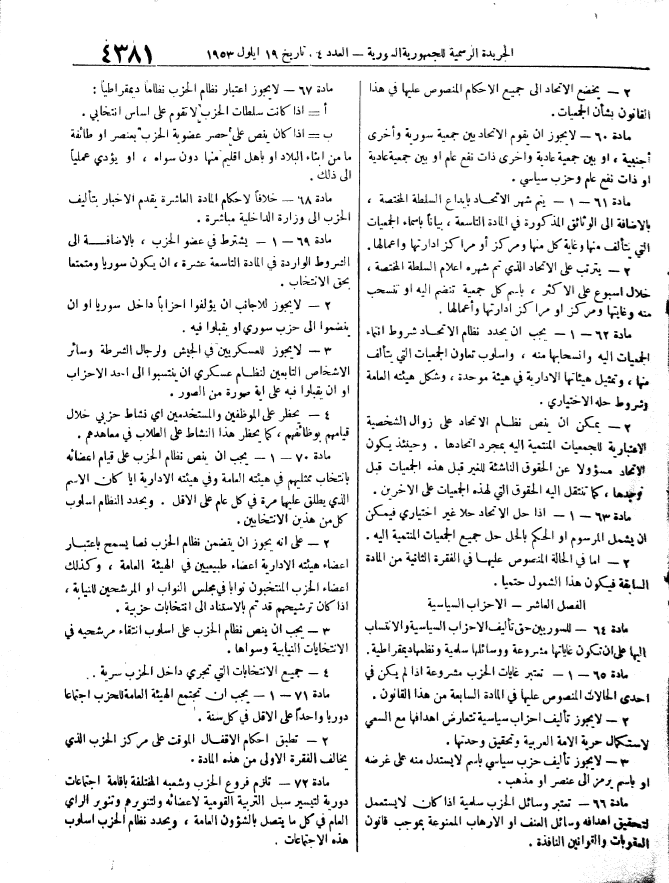 الجريدة الرسمية للجمهورية السورية — العدد ٤٠ تاريخ ١٩ ايلول ١٩٥٣
٤٣٨١
٢ — يخضع الاتحاد الى جميع الاحكام المنصوص عليها في هذا
القانون بشأن الجمعيات.
مادة ٦٠ — لايجوز ان يقوم الاتحاد بين جمعية سورية وأخرى
أجنبية ، او بين جمعية عادية واخرى ذات نفع عام او بين جمعية عادية
او ذات نفع عام وحزب سياسي .
مادة ٦١ — ١ — يتم شهر الاتحاد بايداع السلطة المختصة ،
بالاضافة الى الوثائق المذكورة في المادة التاسعة ، بياناً باسماء الجمعيات
التي يتألف منها وغاية كل منها ومركز أو مراكز ادارتها واعمالها.
٢ — يترتب على الاتحاد الذي تم شهره اعلام السلطة المختصة ،
خلال اسبوع على الاكثر ، باسم كل جمعية تنضم اليه او تنسحب
منه وغايتها ومركز او مراكز ادارتها وأعمالها.
مادة ٦٢ — ١ — يجب ان يحدد نظام الاتحاد شروط انتماء
الجمعيات اليه وانسحابها منه ، واسلوب تعاون الجمعيات التي يتألف
منها، وتمثيل هيئاتها الادارية في هيئة موحدة ، وشكل هيئته العامة
وشروط حله الاختياري .
٢ — يمكن ان ينص نظام الاتحاد على زوال الشخصية
الاعتبارية للجمعيات المنتمية اليه بمجرد اتحادها . وحينئذ يكون
الاتحاد مسؤولا عن الحقوق الناشئة للغير قبل هذه الجمعيات قبل
توحدها ، كما تنتقل اليه الحقوق التي لهذه الجمعيات على الاخرين .
مادة ٦٣ — ١ — اذا حل الاتحاد حلا غير اختياري فيمكن
ان يشمل المرسوم او الحكم بالحل حل جميع الجمعيات المنتمية اليه .
٢ — اما في الحالة المنصوص عليها في الفقرة الثانية من المادة
السابقة فيكون هذا الشمول حتميا .
الفصل العاشر — الاحزاب السياسية
مادة ٦٤ — للسوريين حق تأليف الاحزاب السياسية والانتساب
اليها على ان تكون غاياتها مشروعة ووسائلها سلمية ونظمها ديمقراطية.
مادة ٦٥ — ١ — تعتبر غايات الحزب مشروعة اذا لم يكن في
احدى الحالات المنصوص عليها في المادة السابعة من هذا القانون .
٢ — لايجوز تأليف احزاب سياسية تتعارض اهدافها مع السعي
لاستكمال حرية الامة العربية وتحقيق وحدتها.
٣ — لايجوز تأليف حزب سياسي باسم لايستدل منه على غرضه
او باسم يرمز الى عنصر او مذهب .
مادة ٦٦ — تعتبر وسائل الحزب سلمية اذا كان لايستعمل
لتحقيق اهدافه وسائل العنف او الارهاب الممنوعة بموجب قانون
العقوبات والقوانين النافذة .
مادة ٦٧ — لايجوز اعتبار نظام الحزب نظاما ديمقراطياً :
أ — اذا كانت سلطات الحزب لاتقوم على اساس انتخابي .
ب — اذا كان ينص على حصر عضوية الحزب بعنصر او طائفة
ما من ابناء البلاد او باهل اقليم منها دون سواه ، او يؤدي عملياً
الى ذلك .
مادة ٦٨ — خلافاً لاحكام المادة العاشرة يقدم الاخبار بتأليف
الحزب الى وزارة الداخلية مباشرة .
مادة ٦٩ — ١ — يشترط في عضو الحزب ، بالاضافة الى
الشروط الواردة في المادة التاسعة عشرة ، ان يكون سوريا ومتمتعا
بحق الانتخاب .
٢ — لايجوز للاجانب ان يؤلفوا احزاباً داخل سوريا او ان
ينضموا الى حزب سوري او يقبلوا فيه .
٣ — لايجوز للعسكريين في الجيش ولرجال الشرطة وسائر
الاشخاص التابعين لنظام عسكري ان ينتسبوا الى احد الاحزاب
او ان يقبلوا فيه على اية صورة من الصور .
٤ — يحظر على الموظفين والمستخدمين أي نشاط حزبي خلال
قيامهم بوظائفهم ، كما يحظر هذا النشاط على الطلاب في معاهدهم .
مادة ٧٠ — ١ — يجب ان ينص نظام الحزب على قيام اعضائه
بانتخاب ممثليهم في هيئته العامة وفي هيئته الادارية ايا كان الاسم
الذي يطلق عليها مرة في كل عام على الاقل . ويحدد النظام اسلوب
كل من هذين الانتخابين .
٢ — على انه يجوز ان يتضمن نظام الحزب نصا يسمح باعتبار
اعضاء هيئته الادارية اعضاء طبيعيين في الهيئة العامة ، وكذلك
اعضاء الحزب المنتخبون نوابا في مجلس النواب او المرشحين للنيابة ،
اذا كان ترشيحهم قد تم بالاستناد الى انتخابات حزبية .
٣ — يجب ان ينص نظام الحزب على اسلوب انتقاء مرشحيه في
الانتخابات النيابية وسواها .
٤ — جميع الانتخابات التي تجري داخل الحزب سرية .
مادة ٧١ — ١ — يجب ان تجتمع الهيئة العامة للحزب اجتماعا
دوريا واحداً على الاقل في كل سنة .
٢ — تطبق احكام الاقفال الموقت على مركز الحزب الذي
يخالف الفقرة الاولى من هذه المادة .
مادة ٧٢ — تلزم فروع الحزب وشعبه المختلفة باقامة اجتماعات
دورية لتيسير سبل التربية القومية لاعضائه ولتنويرهم وتنوير الراي
العام في كل ما يتصل بالشؤون العامة ، ويحدد نظام الحزب اسلوب
هذه الاجتماعات .